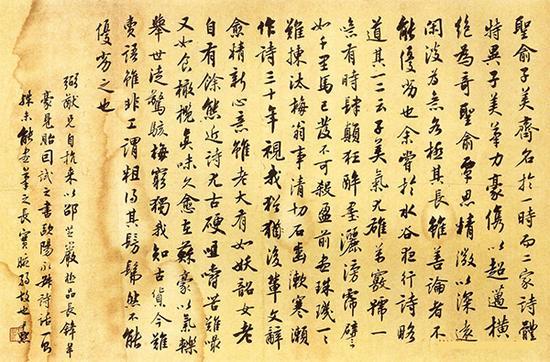 聖俞子美齊名於一時而二家詩體
特異子美筆力豪雋以超邁橫
絕為奇聖俞覃思精微以深遠
閒淡為意各極其長雖善論者不
能優劣也余嘗於水谷夜行詩略
道其一二云子美氣尤雄萬竅號一
噫有時肆顛狂醉墨灑滂霈譬
如千里馬已發不可殺盈前盡珠璣一一
難揀汰梅翁事清切石齒漱寒瀨
作詩三十年視我猶後輩文辭
愈精新心意雖老大有如妖韶女老
自有餘態近詩尤古硬咀嚼苦難嘬
又如食橄欖真味久愈在蘇豪以氣轢
舉世徒驚駭梅窮獨我知古貨今難
賣語雖非工謂粗得其髣髴然不能
優劣之也
猷兄自杭来以邵芝巖極品長鋒羊
毫見貽因試之書歐陽永叔詩話一則
殊未能盡筆之長實腕弱故也尹默